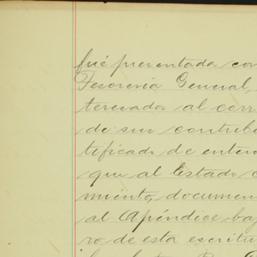 fué presentada con
Tesorería General,
teresados al corr
de sus contribu
tificado de enten
que al Estado
miento, documen
al Apéndice baj
ro de esta escritu